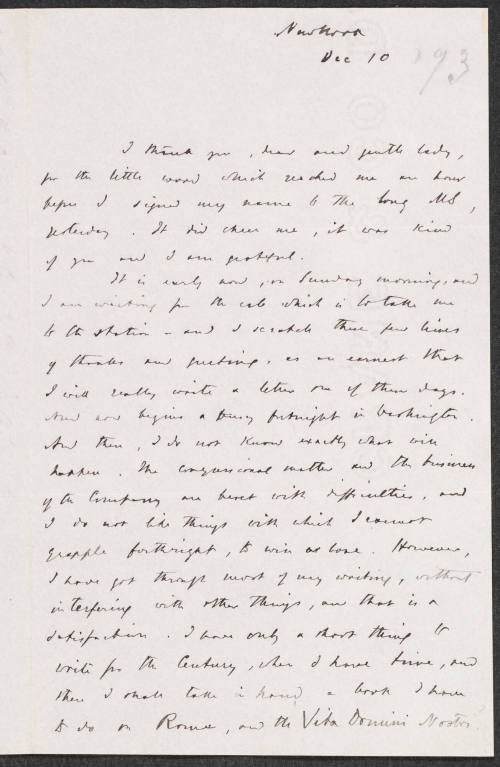 New York
Dec 10 1893
I thank you, dear and gentle lady,
for the little word which reached me an hour
before I signed my name to the long MS,
yesterday. It did cheer me, it was kind
of you and I am grateful.
It is early now, on Sunday morning, and
I am waiting for the cab which is to take me
to the station - and I scratch these few lines
of thanks and greeting, as an earnest that
I will really write a letter one of these days.
And now begins a busy fortnight in Washington.
And then, I do not know exactly what will
happen. The congressional matter and the business
of the Company are beset with difficulties, and
I do not like things with which I cannot
grapple forthright, to win or lose. However,
I have got through most of my writing, without
interfering with other things, and that is a
satisfaction. I have only a short thing to
write for the Century, when I have time, and
then I shall take in hand a book I have
to do on Rome, and the Vita Domini Nostri